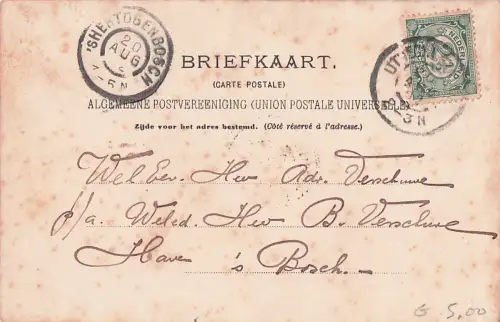 'SHERTOGENBOSCH
20
AUG
4-5N
BRIEFKAART.
(CARTE POSTALE)
ALGEMEENE POSTVEREENIGING (UNION POSTALE UNIVERSELLE)
Zijde voor het adres bestemd. (Côté réservé à l'adresse.)
NEDERLAND
UT
2-3N
WelEw. Heer Adr. Verschure
p/a. Weled. Heer B. Verschure
Haven 's Bosch.
G 5,00